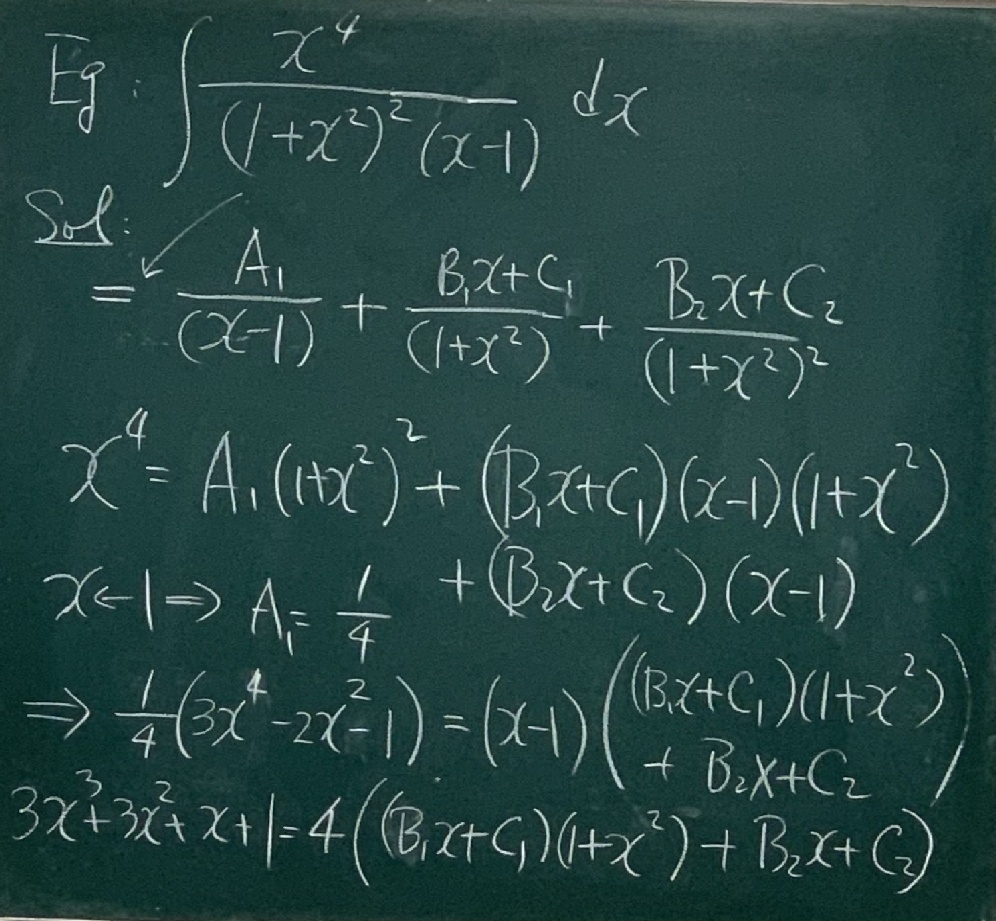 Eg: ∫ x⁴ / ((1+x²)² (x-1)) dx
Sol:
= A₁/(x-1) + (B₁x+C₁)/(1+x²) + (B₂x+C₂)/(1+x²)²
x⁴ = A₁(1+x²)² + (B₁x+C₁)(x-1)(1+x²)
+ (B₂x+C₂)(x-1)
x←1 ⇒ A₁ = 1/4
⇒ 1/4(3x⁴-2x²-1) = (x-1)((B₁x+C₁)(1+x²) + B₂x+C₂)
3x³+3x²+x+1 = 4((B₁x+C₁)(1+x²) + B₂x+C₂)